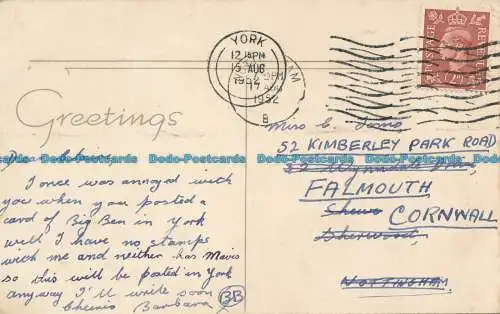 YORK
12 15 PM
15 AUG
1952
17 AUG
1952
8
POSTAGE
REVENUE
Greetings
Dear
I once was annoyed with
you when you posted a
card of Big Ben in York
well I have no stamps
with me and neither has Mavis
so this will be posted in York
anyway I'll write soon
Cheerio Barbara
3B
Miss C.
52 KIMBERLEY PARK ROAD
FALMOUTH
CORNWALL
Sherwood,
NOTTINGHAM
Dodo-Postcards Dodo-Postcards Dodo-Postcards Dodo-Postcards
Dodo-Postcards Dodo-Postcards Dodo-Postcards Dodo-Postcards